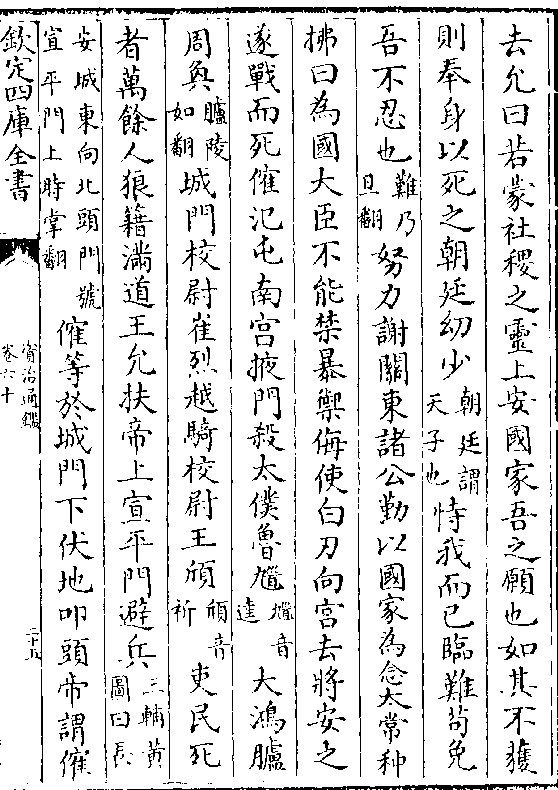 去允曰若蒙社稷之靈上安國家吾之願也如其不獲
則奉身以死之朝廷幼少朝廷謂天子也恃我而已臨難苟免
吾不忍也難乃旦翻努力謝關東諸公勤以國家為念太常种
拂曰為國大臣不能禁暴禦侮使白刃向宮去將安之
遂戰而死傕汜屯南宮掖門殺太僕魯馗馗音逵大鴻臚
周奐臚陵如翻城門校尉崔烈越騎校尉王頎頎音祈吏民死
者萬餘人狼籍滿道王允扶帝上宣平門避兵三輔黃圖曰長
安城東向北頭門號宣平門上時掌翻傕等於城門下伏地叩頭帝謂傕
欽定四庫全書
資治通鑑
卷六十
二十五